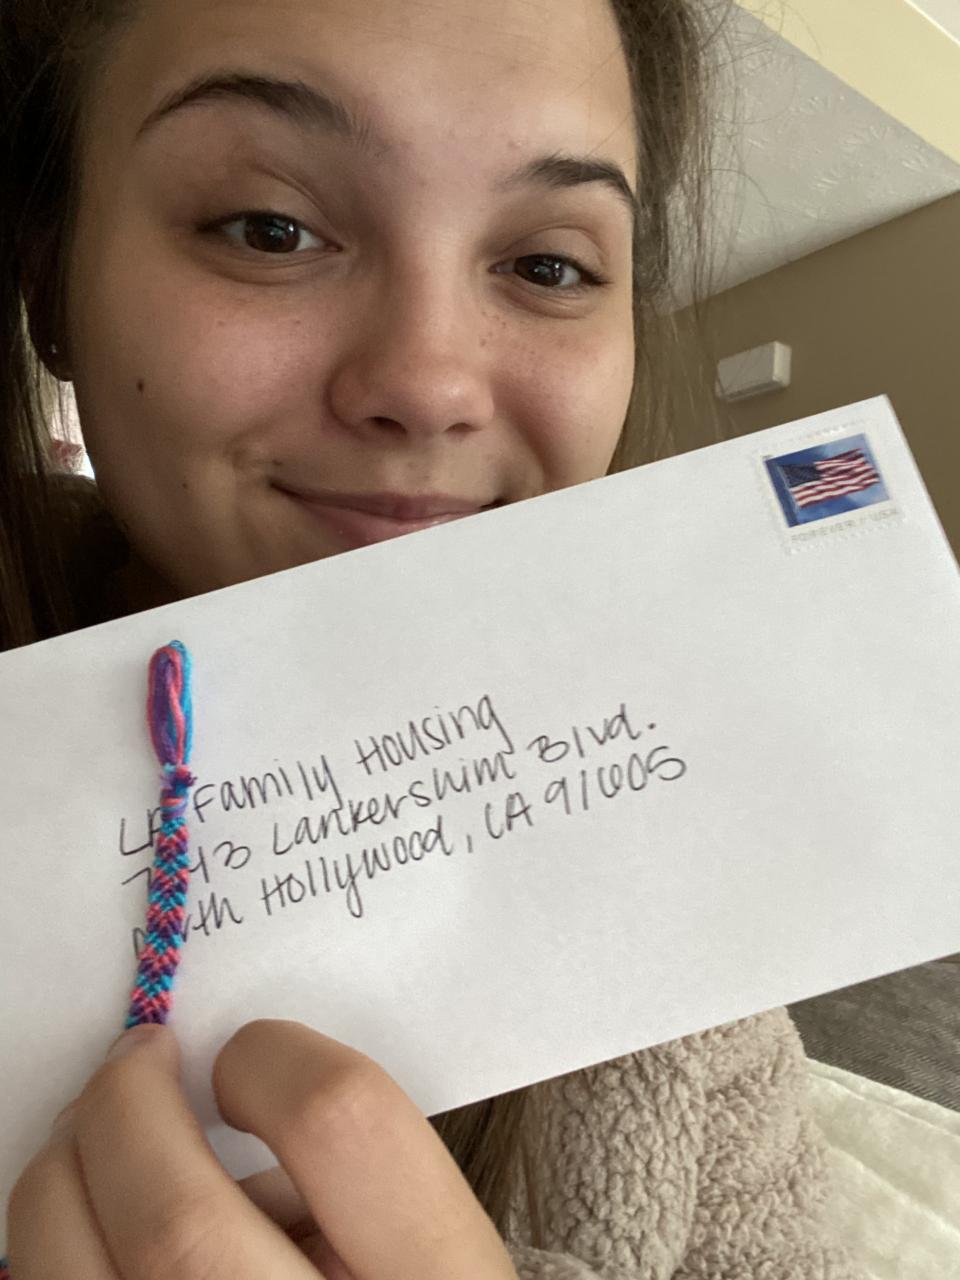 FOREVER / USA
LA Family Housing
Lankershim Blvd.
North Hollywood, CA 91605